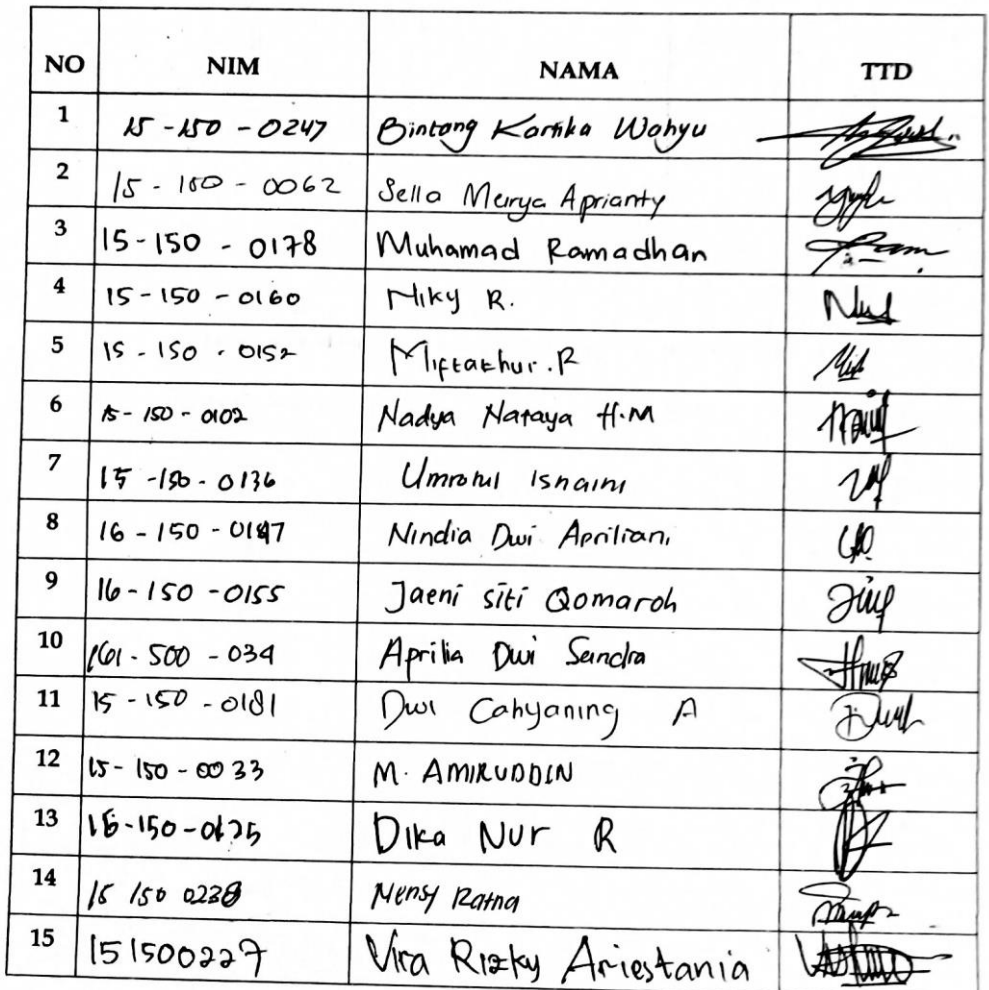 NO NIM NAMA TTD
1 15-150-0247 Bintang Kartika Wahyu
2 15-150-0062 Sella Meirya Aprianty
3 15-150-0178 Muhamad Ramadhan
4 15-150-0160 Niky R.
5 15-150-0152 Miftakhur.R
6 15-150-0102 Nadya Nataya H.M
7 15-150-0136 Umrotul Isnaini
8 16-150-0147 Nindia Dwi Apriliani
9 16-150-0155 Jaeni siti Qomaroh
10 161-500-034 Aprilia Dwi Sandra
11 15-150-0181 Dwi Cahyaning A
12 15-150-0033 M. AMIRUDDIN
13 Dika Nur R
14 15 150 0238 Mensy Ratna
15 151500227 Vira Rizky Ariestania